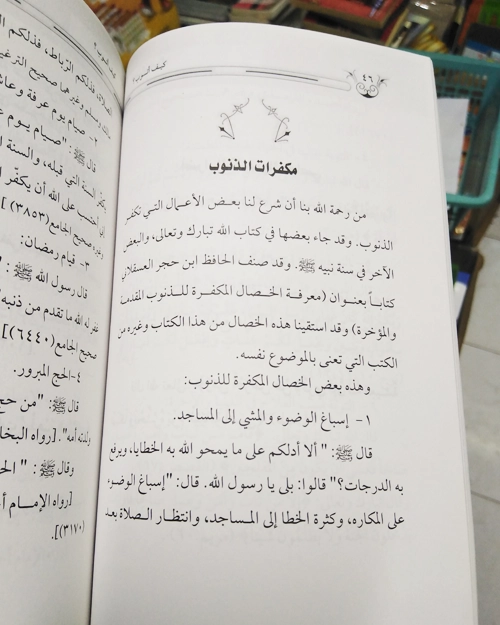 كيف أتوب ؟
٤٦
مكفرات الذنوب
من رحمة الله بنا أن شرع لنا بعض الأعمال التي تكفر
الذنوب. وقد جاء بعضها في كتاب الله تبارك وتعالى، والبعض
الآخر في سنة نبيه ﷺ. وقد صنف الحافظ ابن حجر العسقلاني
كتاباً بعنوان (معرفة الخصال المكفرة للذنوب المقدمة
والمؤخرة) وقد استقينا هذه الخصال من هذا الكتاب وغيره من
الكتب التي تعنى بالموضوع نفسه.
وهذه بعض الخصال المكفرة للذنوب:
١- إسباغ الوضوء والمشي إلى المساجد.
قال ﷺ: "ألا أدلكم على ما يمحو الله به الخطايا، ويرفع
به الدرجات؟" قالوا: بلى يا رسول الله. قال: "إسباغ الوضوء
على المكاره، وكثرة الخطا إلى المساجد، وانتظار الصلاة بعد
الصلاة، فذلكم الرباط، فذلكم ا
٢- صيام يوم عرفة وعاش
قال ﷺ: "صيام يوم ع
يكفر السنة التي قبله، والسنة ا
احتسب على الله أن يكفر ا
صحيح الجامع (٣٨٥٣)]
٣- قيام رمضان:
قال رسول الله ﷺ: "
غفر له ما تقدم من ذنبه"
صحيح الجامع (٦٤٤٠)]
٤- الحج المبرور.
قال ﷺ: "من حج
ولدته أمه". [رواه البخا
وقال ﷺ: "الح
[رواه الإمام أ
(٣١٧٠)].